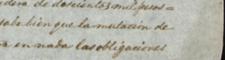 dera de doscientos mil pesos =
sabe bien que la mutación de
a en nada las obligaciones